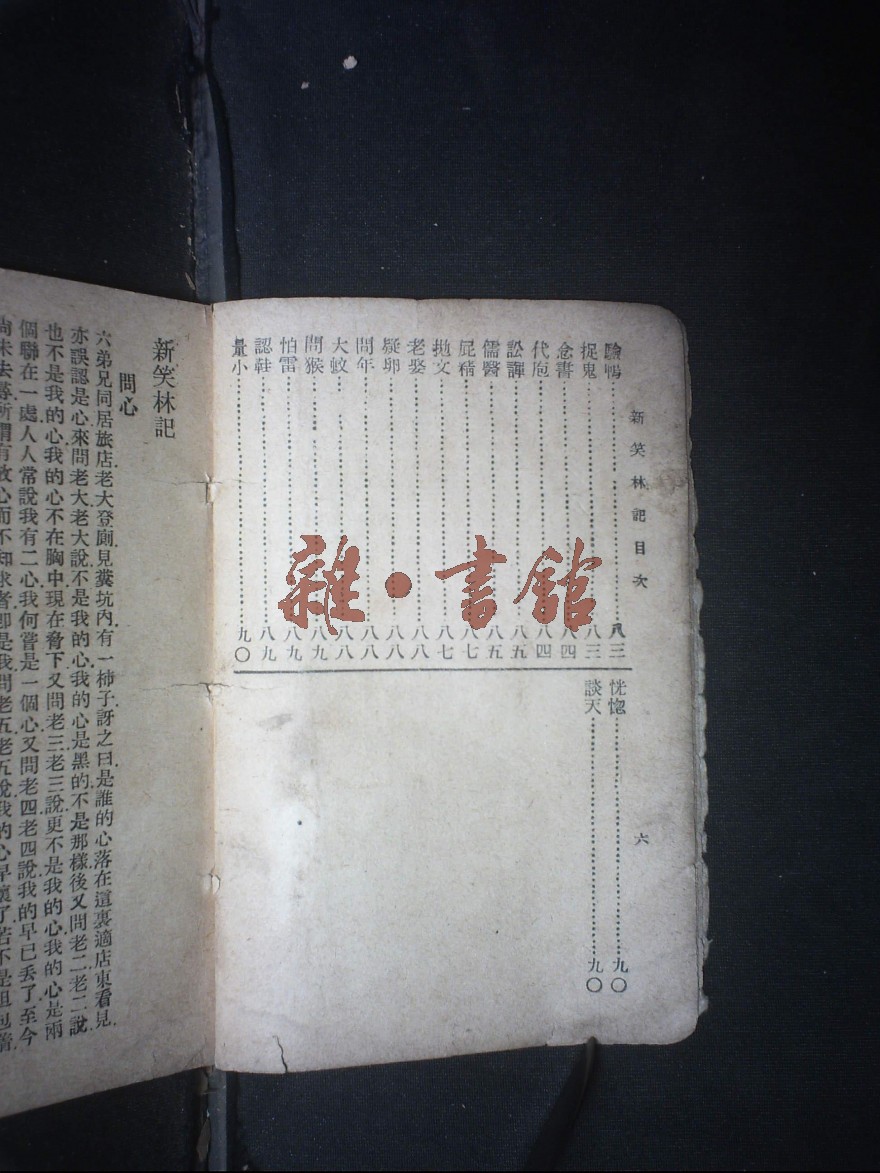 新笑林記目次
六
驗鴨……八三
捉鬼……八三
念書……八四
代庖……八四
訟譁……八五
儒醫……八五
屁精……八七
拋文……八七
老娶……八八
疑卵……八八
問年……八八
大蚊……八八
問猴……八九
怕雷……八九
認鞋……八九
量小……九〇
恍惚……九〇
談天……九〇
新笑林記
問心
六弟兄同居旅店老大登廁見糞坑內有一柿子訝之曰是誰的心落在這裏適店東看見
亦誤認是心來問老大老大說不是我的心我的心是黑的不是那樣後又問老二老二說
也不是我的心我的心不在胸中現在脅下又問老三老三說更不是我的心我的心是兩
個聯在一處人人常說我有二心我何嘗是一個心又問老四老四說我的早已丟了至今
尚未去尋所謂有放心而不知求者卽是我問老五老五說我的心早壞了若不是
雜·書館